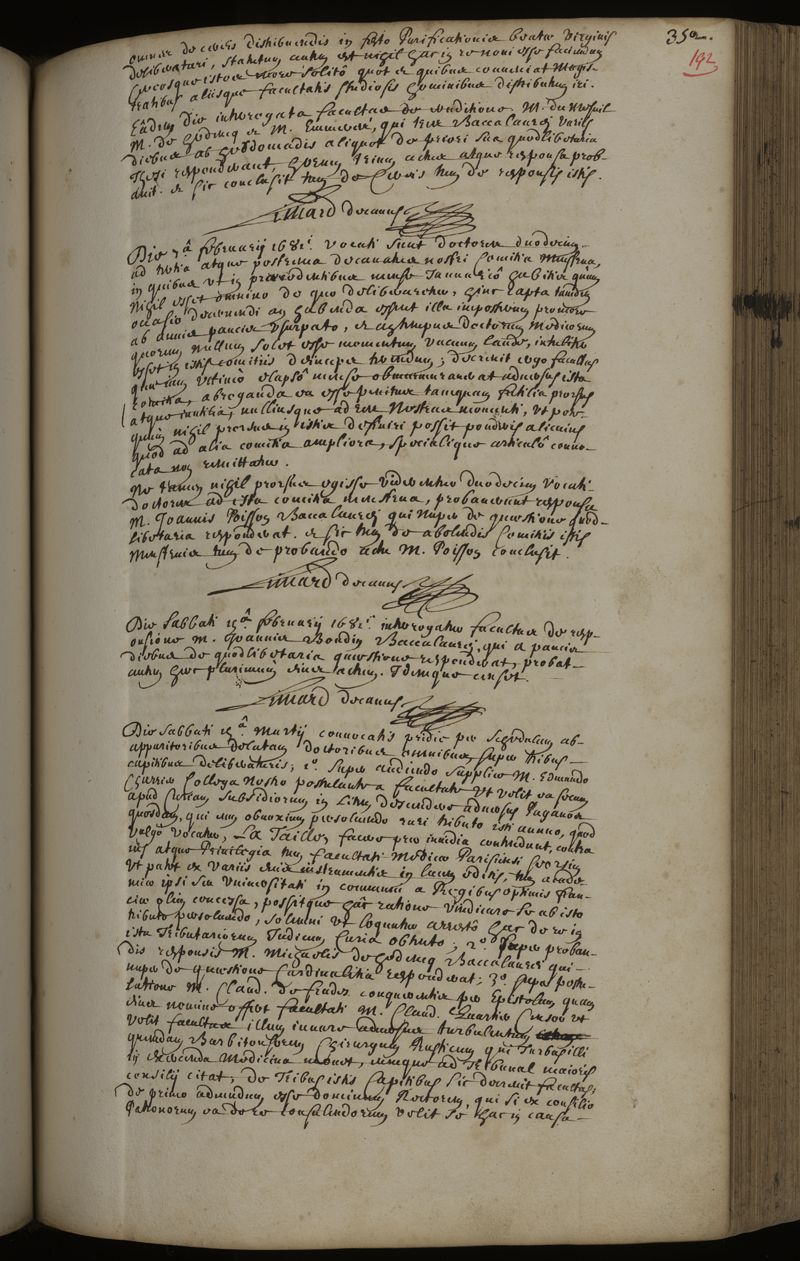 350.
192
omnes de cereis distribuendis in festo Purificationis beatæ Virginis
deliberaturi, statutum autem est nihil hac in re novi esse faciendum
Cereosque istos more solito quot et quibus conveniat Magis-
tratibus aliisque facultatis studiosis hominibus distributum iri.
Eâdem die interrogata facultas de conditione M. du Mesnil
M. de Godincq et M. Emmerez, qui tres Baccalaurei variis
diebus ab hebdomadis aliquot de priori sua quodlibetaria
Thesi responderant, horum trium actus atque responsa prob-
avit. et sic conclusit tum de Cereis tum de responsis istis.
Lienard decanus
Die 7.â februarij 1681.i vocati sunt doctores duodecim
ad nostra atque postrema decanatus nostri Comitia Menstrua,
in quibus ut in præcedentibus mense Januario habitis quum
Nihil esset omnino de quo deliberaretur, hinc capta tandem
occasio decernendi an habenda essent illa imposterum
ab annis paucis usurpato, et
quorum nullum solet esse momentum
esset in istis comitiis deinceps ; decrevit ergo facultas
quæ iam ultimò elapsô mense adversus ista
comitia, abroganda ea esse penitus tamquam futilia prorsus
atque inutilia, nulliusque ad rem Nostram momenti, ut pote
quum nihil prorsus in istis definiri possit alicuius
quod ad alia comitia ampliora, specialique articulô convo-
cata non remittatur.
Ne tamen nihil prorsus egisse viderentur duodecim vocati
doctores ad ista comitia menstrua, probaverunt responsa
M. Joannis Poisson Baccalaurei qui nuper de quæstione quod-
libetaria responderat. et sic tum de abolendis Comitiis istis
Menstruis tum de probando actu M. Poisson conclusit.
Lienard decanus
Die Sabbati 15.â februarij 1681.i interrogata facultas de resp-
onsione M. Joannis Boudin Baccalaurei, qui a paucis
diebus de quodlibetaria quæstione responderat, probat-
autem hoc plurimum eius actum. Idemque censet.
Lienard decanus
Die Sabbati 15.â Martij convocatis pridie per schedulam ab
apparitoribus delatam doctoribus omnibus, super tribus
capitibus deliberaturis; 1.º super audiendo supplice M. Edmundo
Collega Nostro postulante a facultate ut velit ea secum
apud Curiam Subsidiorum in Litem descendere adversus Paganos
quosdam, qui eum obnoxium persolvendo rursi tributo isti annuo, quod
vulgo vocatur, La Taille, facere præ invidia contendunt, contra
ius atque Privilegia tum facultati Medicæ Parisiensi seorsim
ut patet ex variis eius instrumentis in lucem editis, tum acade-
miæ ipsi seu universitati in communi a Regibus optimis fran-
ciæ olim concessa, possitque hac ratione vindicare se ab isto
tributo persolvendo, solemni ut loquuntur arrestô hac de re in
ista Tributariorum Judicum Curia obtento; 2.º super proban-
dis responsis M. Michaelis de Godincq Baccalaurei qui
nuper de quæstione Cardinalitia responderat; 3.º super postu-
latione M. Claud. de conquerentis per Epistolam quam
eius nomine offert facultati M. Claud. Quartier Censor ut
velit facultas illum iuvare adversus turbulentum
quemdam Barbitonsorem Chirurgum Rusticum qui Turbas illi
in exercenda Medicina movet, eumque ad Tribunal maioris
consilij citat, de Tribus istis Capitibus sic decrevit facultas,
de primo adeundum esse dominum Rectorem, qui si ex consilio
Patronorum ea de re consulendorum velit se hac in causa